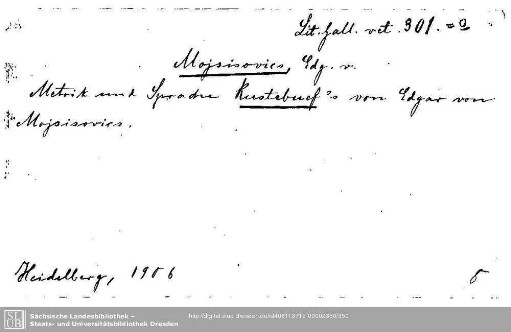 Lit. gall. vet. 301. = o
Mojsisovics, Edg. v.
Metrik und Sprache Rustebuef's von Edgar von
Mojsisovics.
Heidelberg, 1906
Sächsische Landesbibliothek –
Staats- und Universitätsbibliothek Dresden